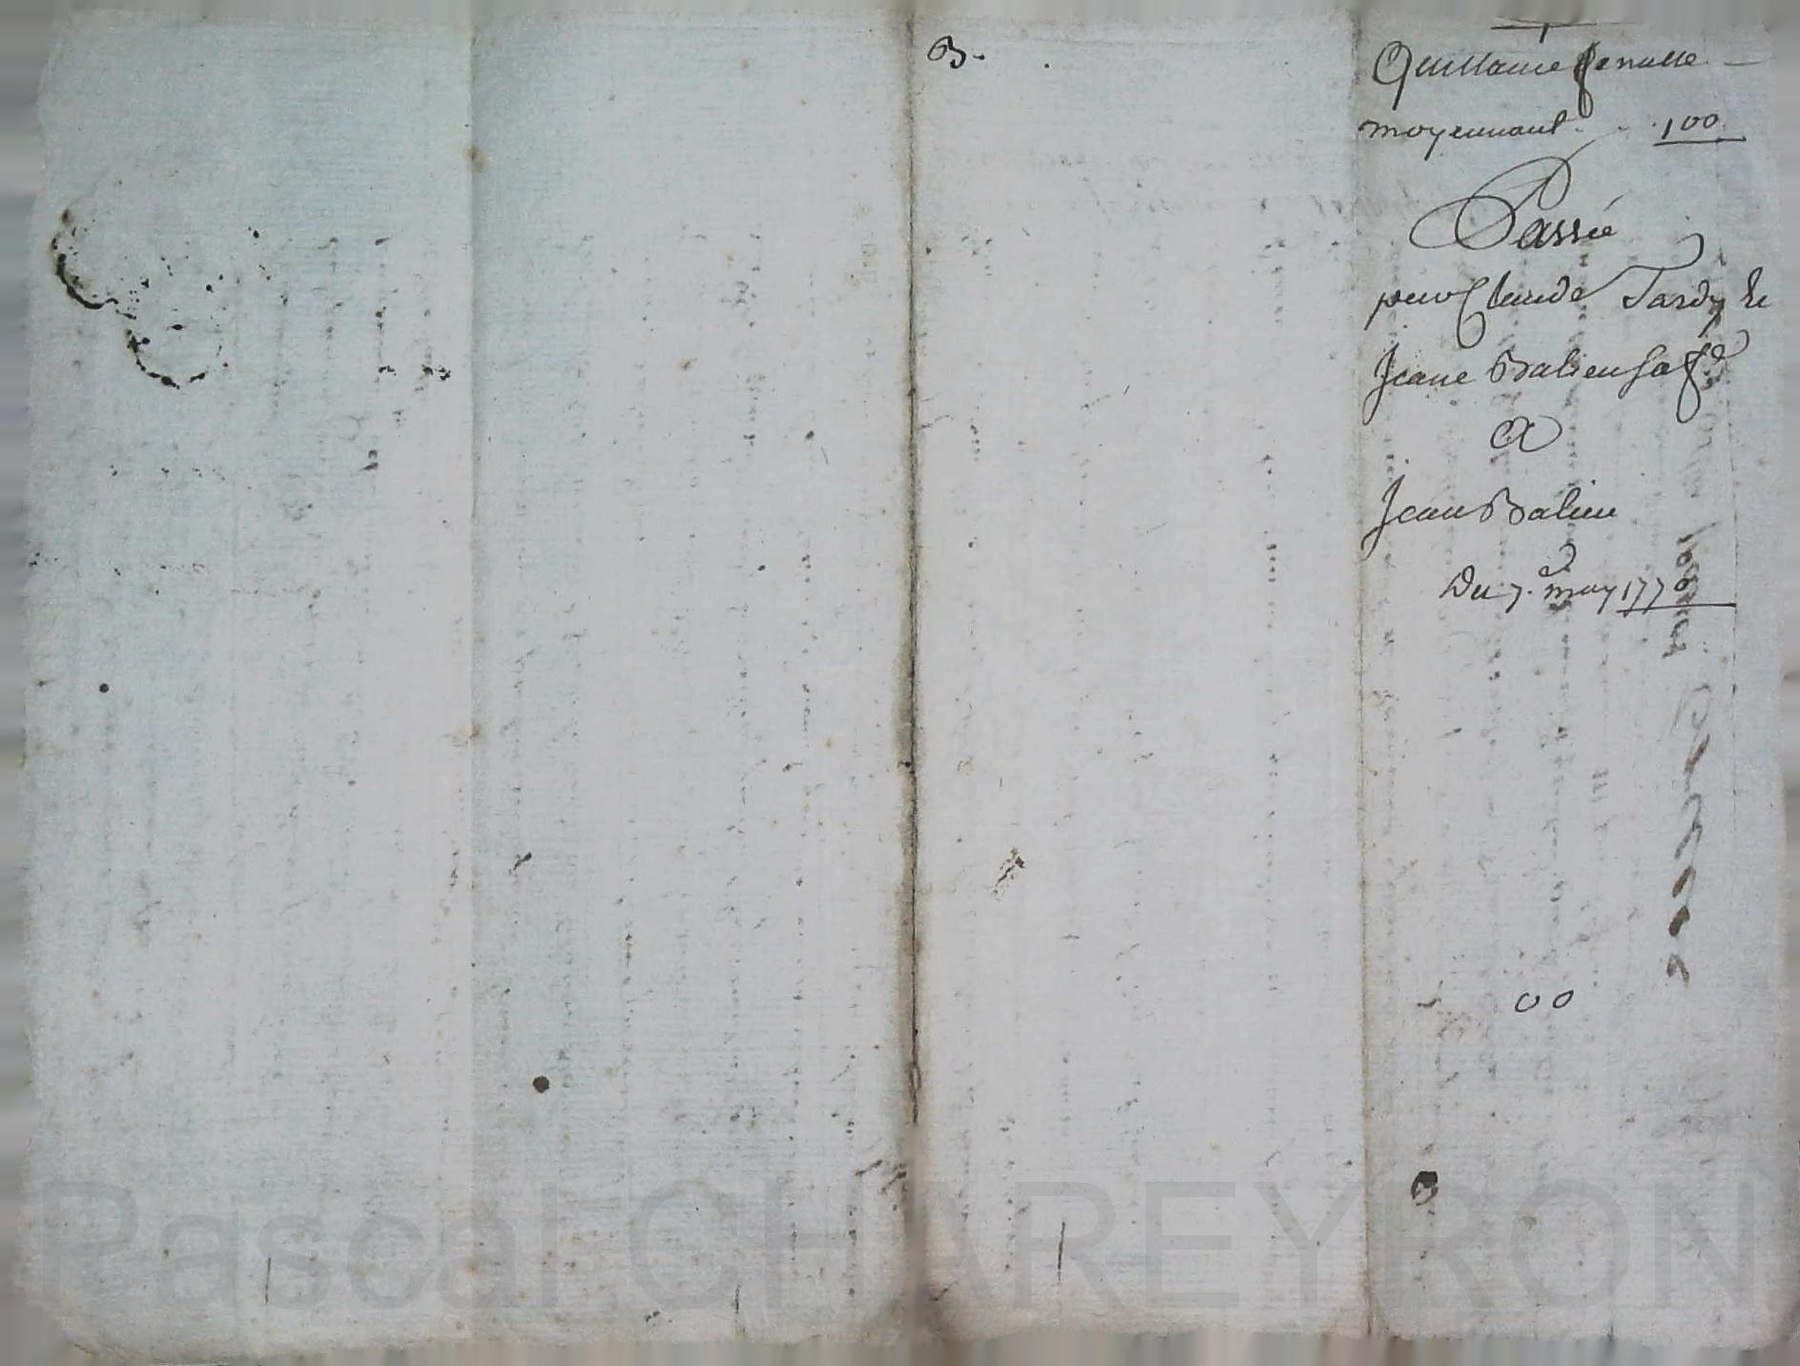 B.
Quittance generalle
moyennant 100
Passée
par Claude Tardy et
Jeane Balieu sa f.e
A
Jean Balieu
Du 7. may 1770
00
Pascal CHAREYRON